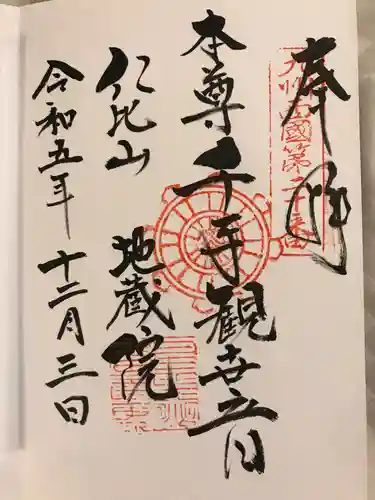 奉拝
九州西國第二十番
本尊 千手観世音
仁比山 地蔵院
令和五年 十二月三日